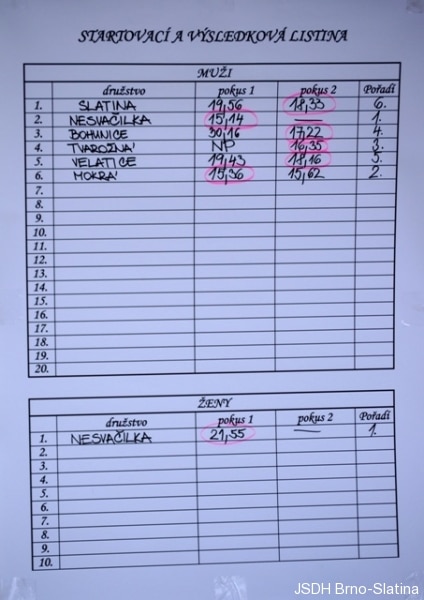 STARTOVACÍ A VÝSLEDKOVÁ LISTINA
MUŽI
družstvo pokus 1 pokus 2 Pořadí
1. SLATINA 19,56 18,33 6.
2. NESVAČILKA 15,14 — 1.
3. BOHUNICE 30,16 17,22 4.
4. TVAROŽNÁ NP 16,35 3.
5. VELATICE 19,43 18,16 5.
6. MOKRÁ 15,36 15,62 2.
7.
8.
9.
10.
11.
12.
13.
14.
15.
16.
17.
18.
19.
20.
ŽENY
družstvo pokus 1 pokus 2 Pořadí
1. NESVAČILKA 21,55 — 1.
2.
3.
4.
5.
6.
7.
8.
9.
10.
JSDH Brno-Slatina